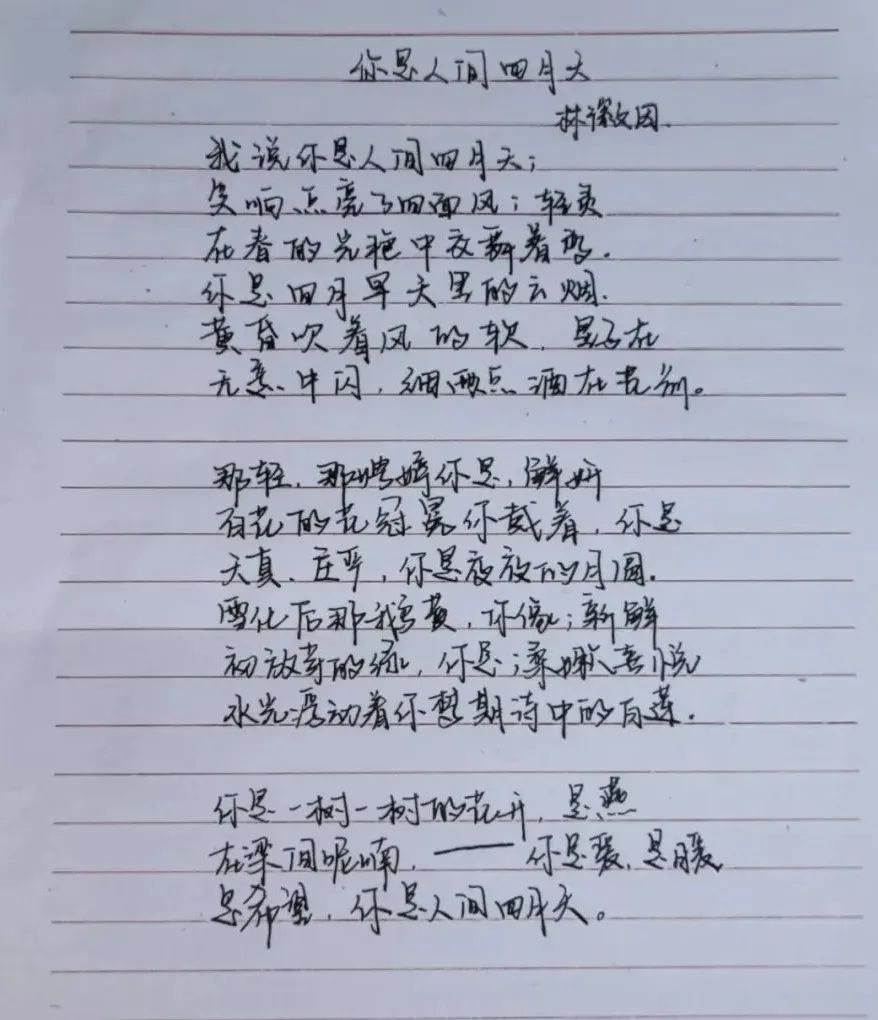 你是人间四月天
林徽因.
我说你是人间四月天;
笑响点亮了四面风;轻灵
在春的光艳中交舞着变.
你是四月早天里的云烟.
黄昏吹着风的软,星子在
无意中闪,细雨点洒在花前。
那轻,那娉婷你是,鲜妍
百花的花冠冕你戴着,你是
天真、庄严,你是夜夜的月圆.
雪化后那鹅黄,你像;新鲜
初放芽的绿,你是;柔嫩喜悦
水光浮动着你梦期待中的白莲.
你是一树一树的花开,是燕
在梁间呢喃,——你是爱,是暖
是希望,你是人间四月天。